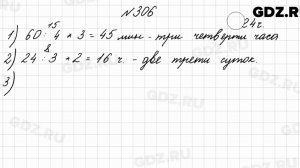 GDZ.RU
№306
24ч.
15
1) 60 : 4 * 3 = 45 мин - три четверти часа
8
2) 24 : 3 * 2 = 16 ч. - две трети суток.
3)
GDZ.RU